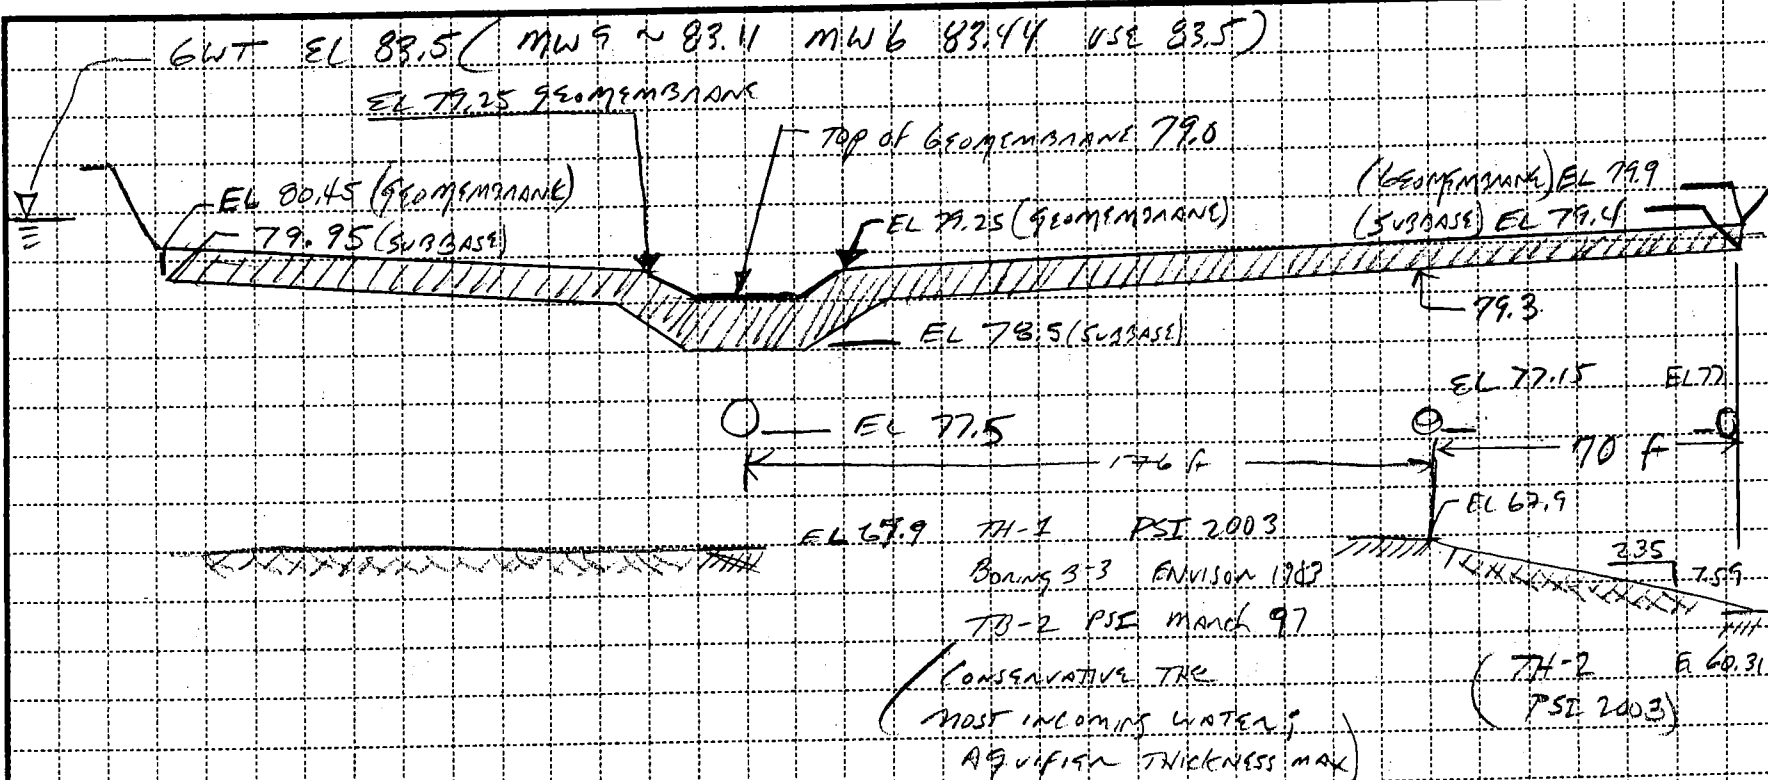 GWT EL 83.5 ( MW 9 ~ 83.11 MW 6 83.44 USE 83.5)
EL 79.25 GEOMEMBRANE
TOP OF GEOMEMBRANE 79.0
EL 80.45 (GEOMEMBRANE)
79.95 (SUBBASE)
EL 79.25 (GEOMEMBRANE)
(GEOMEMBRANE) EL 79.9
(SUBBASE) EL 79.4
79.3
EL 78.5 (SUBBASE)
EL 77.15
EL 77
EL 77.5
176 ft
70 ft
EL 67.9
EL 67.9 TH-1 PSI 2003
235
7.59
Boring B-3 ENVISON 1983
TB-2 PSI March 97
(CONSERVATIVE THE
MOST INCOMING WATER;
AQUIFIER THICKNESS MAX)
(TH-2
PSI 2003)
EL 60.31